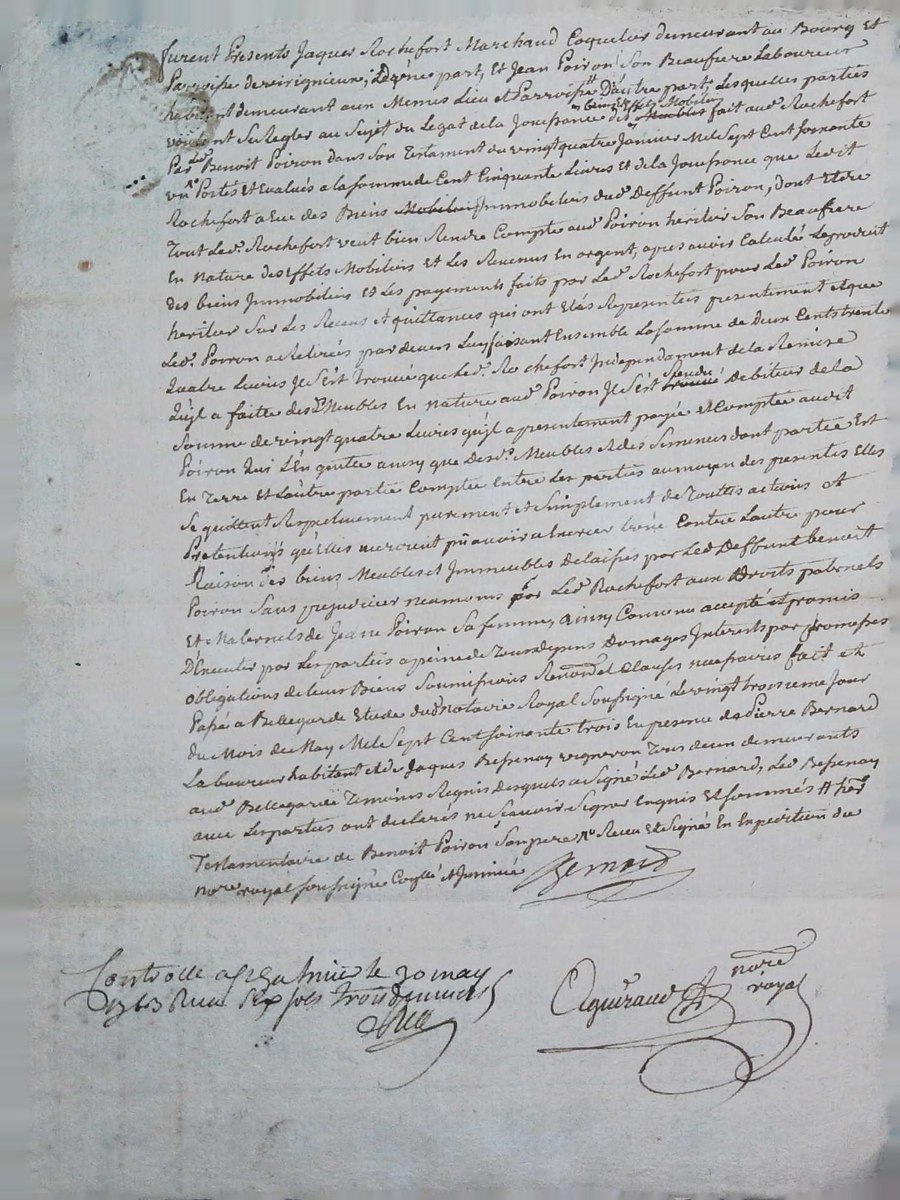 furent Presents Jaques Rochefort Marchand Coquelier demeurant au Bourg et
Parroisse de virignieux, d'une part, Et Jean Poiron Son Beaufrere Laboureur
habitant demeurant aux Memes Lieu et Parroisse D'autre part, Lesquelles parties
voulant Se Regler au Sujet du Legat de la Jouissance des Meubles fait aud Rochefort
biens Effets Mobiliers
Par Led Benoit Poiron dans Son Testament du vingt quatre Janvier Mil Sept Cent Soixante
un Portés et Evalués a la Somme de Cent Cinquante Livres Et de la Jouissance que Ledit
Rochefort a Eue des Biens Mobiliers Immobiliers dud Deffunt Poiron, dont Et de
Tout Led. Rochefort veut bien Rendre Compte aud Poiron heritier Son Beaufrere
En Nature des Effets Mobiliers Et Les Revenus En argent, apres avoir Calculé Le produit
des biens Immobiliers Et Les payements faits par Led Rochefort pour Led Poiron
heritier Sur Les Recens et quittances qui ont Etés Representées presentement et que
Led. Poiron a Retirées par devers Luy faisant Ensemble La Somme de Deux Cents trente
quatre Livres Il S'est Trouvé que Led. Rochefort Independament de la Remise
qu'il a faitte des d. Meubles En Nature aud Poiron Il S'est trouvé Debiteur de la
rendu
Somme de vingt quatre Livres qu'il a presentement payée et Comptée audit
Poiron qui L'En quitte ainsy que Desd. Meubles et des Semences dont partie Est
En Terre Et L'autre partie Comptée Entre Les parties au moyen des presentes Elles
Se quittent Respectivement purement et Simplement de Touttes actions et
Pretentions qu'Elles auroient pû avoir a Exercer L'une Contre L'autre pour
Raison des biens Meubles et Immeubles delaissés par Led Deffunt benoit
Poiron Sans prejudicier neamoins par Led Rochefort aux Droits paternels
Et Maternels de Jeane Poiron Sa femme, ainsy Convenu accepté et promis
D'Executer par Les parties a peine de Tous depens Domages Interets par promesses
obligations de leurs Biens Soumissions Renond et Clauses necessaires fait et
Passé a Bellegarde Etude dud Notaire Royal Soussigné Le vingt troisieme Jour
du Mois de May Mil Sept Cent Soixante trois En presence de Pierre Bernard
Laboureur habitant et de Jaques Bessenay vigneron Tous deux demeurants
aud Bellegarde Temoins Requis desquels a Signé Led Bernard, Led Bessenay
avec Les parties ont declarés ne Scavoir Signer Enquis Et Sommés
Testamentaire de Benoit Poiron Son pere Receu Et Signé En Expedition du
nore royal Soussigné
Bernard
Controlle a le 30 may
1763 Recu six sols trois deniers
Aguiraud nore
royal